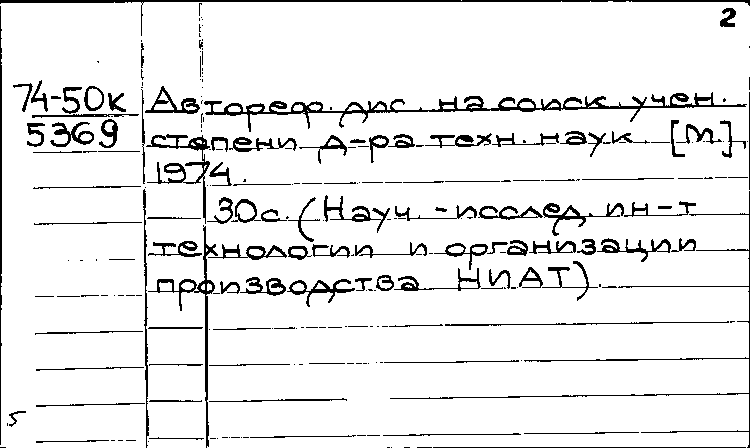 2
74-50к Автореф. дис. на соиск. учен.
5369 степени д-ра техн. наук. [М.],
1974.
30с. (Науч.-исслед. ин-т
технологии и организации
производства НИАТ).
5